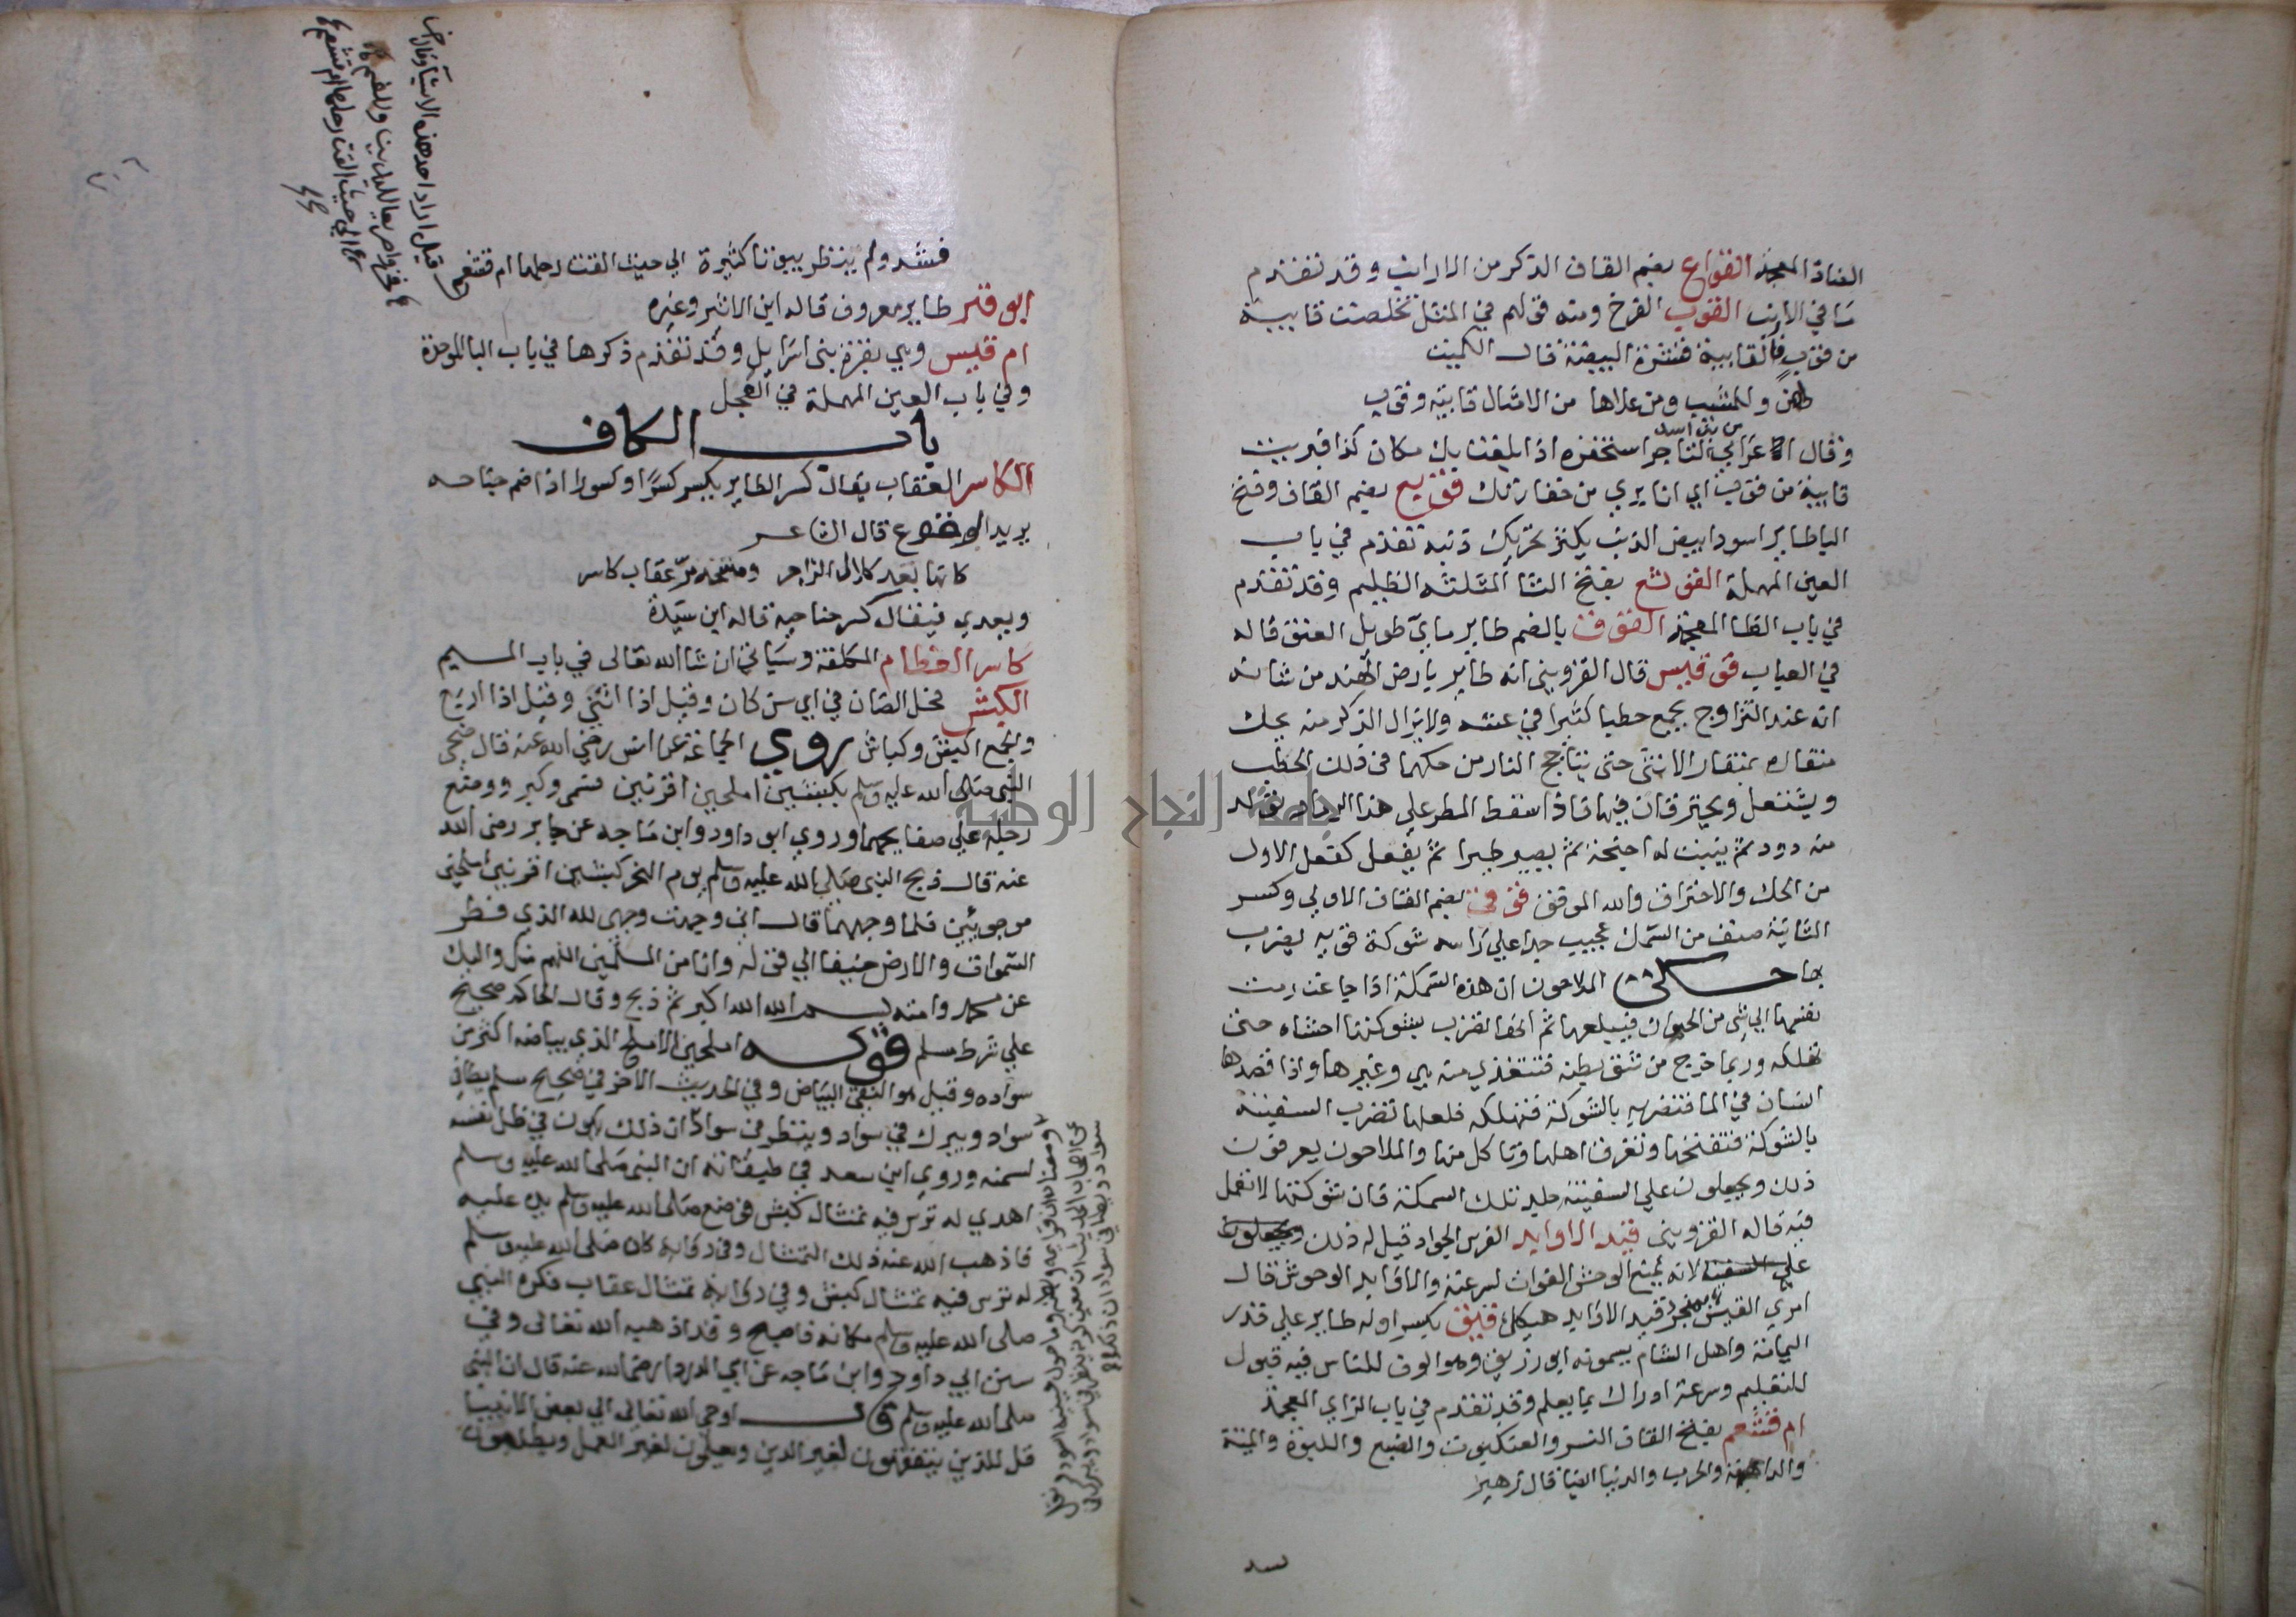 القناة المعجمة القواع بضم القاف الذكر من الارانب وقد تقدم
ما في الارنب القوب الفرخ ومنه قولهم في المثل تخلصت قايبة
من قوب فالقايبة قشرة البيضة قال الكميت
لهن وللمشيب ومن علاها من الامثال قايبة وقوب
وقال اعرابي من بني اسد لتاجر استخفره اذا بلغت بك مكان كذا فبريت
قايبة من قوب اي انا بري من خفارتك قوبع بضم القاف وفتح
البا طاير اسود ابيض الذنب يكثر تحريك ذنبه تقدم في باب
العين المهملة القوثع بفتح الثا المثلثه الظليم وقد تقدم
في باب الظا المعجمة القوق بالضم طاير مايي طويل العنق قاله
في العباب قوقيس قال القزويني انه طاير بارض الهند من شانه
انه عند التزاوج يجمع حطبا كثيرا في عشه ولا يزال الذكر منه يحك
منقاره بمنقار الانثى حتى يتاجج النار من حكهما في ذلك الحطب
ويشتعل ويحترقان فيها فاذا سقط المطر على هذا الرماد تولد
منه دود ثم ينبت له اجنحة ثم يصير طيرا ثم يفعل كفعل الاول
من الحك والاحتراق والله الموفق قوقي بضم القاف الاولي وكسر
الثانية صنف من السمك عجيب جدا علي راسه شوكة قوية يضرب
بها حكى الملاحون ان هذه السمكة اذا جاعت رمت
نفسها الي شي من الحيوان فيبلعها ثم انها تضرب بشوكتها احشاه حتى
تهلكه وربما خرج من شق بطنه فتتغذي منه هي وغيرها واذا قصدها
انسان في الما فتضربه بالشوكة فتهلكه فلعلها تضرب السفينة
بالشوكة فتنفتحها وتغرق اهلها وتاكل منها والملاحون يعرفون
ذلك ويجعلون علي السفينة جلد تلك السمكة فان شوكتها لا تعمل
فيه قاله القزويني قيد الاوابد الفرس الجواد قيل له ذلك ويجعلون
علي السفينة لانه يمنع الوحش الفوات لسرعته والاوابد الوحوش قال
امرئ القيس بمنجرد قيد الاوابد هيكل قيق بكسر اوله طاير علي قدر
اليمامة واهل الشام يسمونه ابو زريق وهو الوف للناس فيه قبول
للتعليم وسرعة ادراك بما يعلم وقد تقدم في باب الزاي المعجمة
ام قشعم بفتح القاف النسر والعنكبوت والضبع واللبوة والمنية
والداهية والحرب والدنيا ايضا قال زهير
فشد ولم ينظر بيوتا كثيرة الي حيث القت رحلها ام قشعم
ابو قتر طاير معروف قاله ابن الاثير وغيره
ام قيس وهي بقرة بني اسرايل وقد تقدم ذكرها في باب البا الموحدة
وفي باب العين المهملة في العجل
باب الكاف
الكاسر العقاب يقال كسر الطاير يكسر كسرا وكسورا اذا ضم جناحه
يريد الوقوع قال الشاعر
كانها بعد كلال الزاجر ومسحه مر عقاب كاسر
ويعدي فيقال كسر جناحيه قاله ابن سيدة
كاسر العظام المكلفة وسياتي ان شا الله تعالى في باب الميم
الكبش فحل الضان في اي سن كان وقيل اذا اثني وقيل اذا اربع
والجمع اكبش وكباش روي الجماعة عن انس رضي الله عنه قال ضحي
النبي صلى الله عليه وسلم بكبشين املحين اقرنين سمي وكبر ووضع
رجله علي صفاحهما وروي ابو داود وابن ماجه عن جابر رضي الله
عنه قال ذبح النبي صلي الله عليه وسلم يوم النحر كبشين اقرنين املحين
موجوئين فلما وجههما قال اني وجهت وجهي لله الذي فطر
السموات والارض حنيفا الي قوله وانا من المسلمين اللهم منك واليك
عن محمد وامته بسم الله الله اكبر ثم ذبح وقال الحاكم صحيح
علي شرط مسلم قوله املحين الاملح الذي بياضه اكثر من
سواده وقيل هو النقي البياض وفي الحديث الاخر في صحيح مسلم يطا في
سواد ويبرك في سواد وينظر في سواد ان ذلك يكون في ظل نفسه
لسمنه وروي ابن سعد في طبقاته ان النبي صلي الله عليه وسلم
اهدي له ترس فيه تمثال كبش فوضع صلى الله عليه وسلم يده عليه
فاذهب الله عنه ذلك التمثال وفي رواية كان صلى الله عليه وسلم
له ترس فيه تمثال كبش وفي رواية تمثال عقاب فكره النبي
صلى الله عليه وسلم مكانه فاصبح وقد اذهبه الله تعالى وفي
سنن ابي داود وابن ماجه عن ابي الدرداء رضي الله عنه قال ان النبي
صلى الله عليه وسلم قال اوحي الله تعالى الي بعض الانبيا
قل للذين يتفقهون لغير الدين ويعلمون لغير العمل ويطلبون